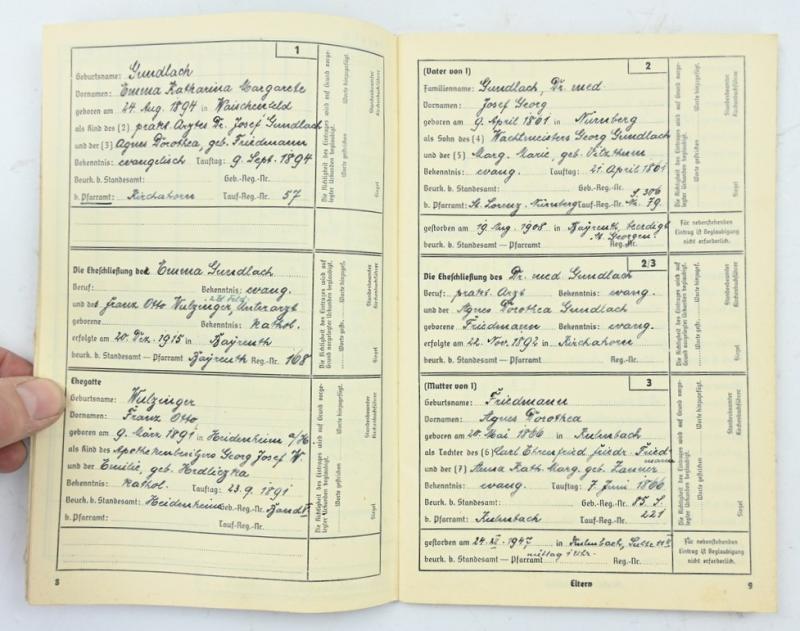 1
Geburtsname: Gundlach
Vornamen: Emma Katharina Margarete
geboren am 24. Aug. 1894 in Waischenfeld
als Kind des (2) prakt. Arztes Dr. Josef Gundlach
und der (3) Agnes Dorothea, geb. Friedmann
Bekenntnis: evangelisch Tauftag: 9. Sept. 1894
Beurk. b. Standesamt: Geb.-Reg.-Nr.
b. Pfarramt: Kirchahorn Tauf-Reg.-Nr. 57
Die Richtigkeit des Eintrages wird auf Grund vorge-
legter Urkunden beglaubigt.
Worte gestrichen
Worte hinzugefügt.
Standesbeamter
Kirchenbuchführer
Siegel
Die Eheschließung der Emma Gundlach
Beruf: Bekenntnis: evang.
und des Franz Otto Wulzinger, Unterarzt
geborene Bekenntnis: kathol.
erfolgte am 20. Dez. 1915 in Bayreuth
beurk. b. Standesamt — Pfarramt Bayreuth Reg.-Nr. 168
Die Richtigkeit des Eintrages wird auf
Grund vorgelegter Urkunden beglaubigt.
Worte gestr. Worte hinzugef.
Standesbeamter
Kirchenbuchführer
Siegel
Ehegatte
Geburtsname: Wulzinger
Vornamen: Franz Otto
geboren am 9. März 1891 in Heidenheim a/H
als Kind des Apothekenbesitzers Georg Josef W.
und der Emilie, geb. Hrdliczka
Bekenntnis: kathol. Tauftag: 23. 9. 1891
Beurk. b. Standesamt: Heidenheim Geb.-Reg.-Nr. Band
b. Pfarramt: Tauf-Reg.-Nr.
Die Richtigkeit des Eintrages wird auf Grund vorge-
legter Urkunden beglaubigt.
Worte gestrichen
Worte hinzugefügt.
Standesbeamter
Kirchenbuchführer
Siegel
8
2
(Vater von 1)
Familienname: Gundlach, Dr. med.
Vornamen: Josef Georg
geboren am 9. April 1861 in Nürnberg
als Sohn des (4) Wachtmeisters Georg Gundlach
und der (5) Marg. Marie, geb. Vilzthum
Bekenntnis: evang. Tauftag: 21. April 1861
Beurk. b. Standesamt: Geb.-Reg.-Nr. S. 306
b. Pfarramt: St. Lorenz-Nürnberg Tauf-Reg.-Nr. No. 79.
gestorben am 19. Aug. 1908 in Bayreuth, beerdigt
St. Georgen.
beurk. b. Standesamt — Pfarramt Reg.-Nr.
Die Richtigkeit des Eintrages wird auf Grund vorge-
legter Urkunden beglaubigt.
Worte gestrichen
Worte hinzugefügt.
Standesbeamter
Kirchenbuchführer
Siegel
Für nebenstehenden
Eintrag ist Beglaubigung
nicht erforderlich.
2/3
Die Eheschließung des Dr. med Gundlach
Beruf: prakt. Arzt Bekenntnis: evang.
und der Agnes Dorothea Gundlach
geborene Friedmann Bekenntnis: evang.
erfolgte am 22. Nov. 1892 in Kirchahorn
beurk. b. Standesamt — Pfarramt Reg.-Nr.
Die Richtigkeit des Eintrages wird auf
Grund vorgelegter Urkunden beglaubigt.
Worte gestr. Worte hinzugef.
Standesbeamter
Kirchenbuchführer
Siegel
3
(Mutter von 1)
Geburtsname: Friedmann
Vornamen: Agnes Dorothea
geboren am 20. Mai 1866 in Kulmbach
als Tochter des (6) Carl Ehrenfried Friedr. Fried
mann
und der (7) Anna Kath. Marg. geb. Zanner
Bekenntnis: evang. Tauftag: 7. Juni 1866
Beurk. b. Standesamt: Geb.-Reg.-Nr. 85. S.
b. Pfarramt: Kulmbach Tauf-Reg.-Nr. 221
gestorben am 24. XII. 1947 in Kulmbach,
mittag 1 Uhr.
beurk. b. Standesamt — Pfarramt Reg.-Nr.
Die Richtigkeit des Eintrages wird auf Grund vorge-
legter Urkunden beglaubigt.
Worte gestrichen
Worte hinzugefügt.
Standesbeamter
Kirchenbuchführer
Siegel
Für nebenstehenden
Eintrag ist Beglaubigung
nicht erforderlich.
Eltern
9